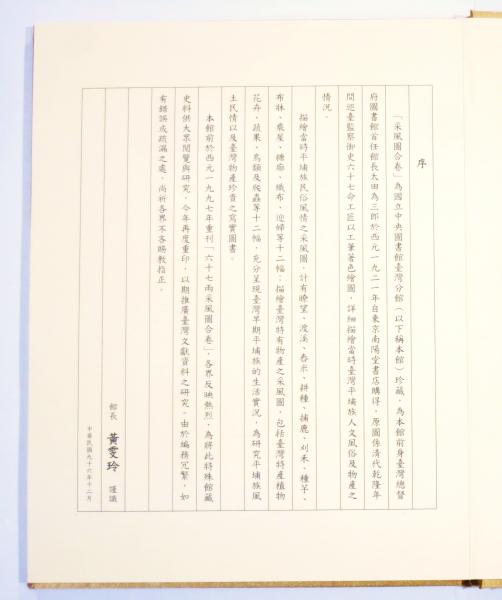 序
「采風圖合卷」為國立中央圖書館臺灣分館(以下稱本館)珍藏,為本館前身臺灣總督
府圖書館首任館長太田為三郎於西元一九二一年自東京南陽堂書店購得,原圖係清代乾隆年
間巡臺監察御史六十七命工匠以工筆著色繪圖,詳細描繪當時臺灣平埔族人文風俗及物產之
情況。
描繪當時平埔族民俗風情之采風圖,計有瞭望、渡溪、舂米、耕種、捕鹿、刈禾、種芋、
布牀、乘屋、糖廍、織布、迎婦等十二幅;描繪臺灣特有物產之采風圖,包括臺灣特產植物
花卉、蔬果、鳥類及爬蟲等十二幅,充分呈現臺灣早期平埔族的生活實況,為研究平埔族風
土民情以及臺灣物產珍貴之寫實圖書。
本館前於西元一九九七年重刊「六十七兩采風圖合卷」,各界反映熱烈,為將此特殊館藏
史料供大眾閱覽與研究,今年再度重印,以期推廣臺灣文獻資料之研究。由於編務冗繁,如
有錯誤或疏漏之處,尚祈各界不吝賜教指正。
館長 黃雯玲 謹識
中華民國九十六年十二月